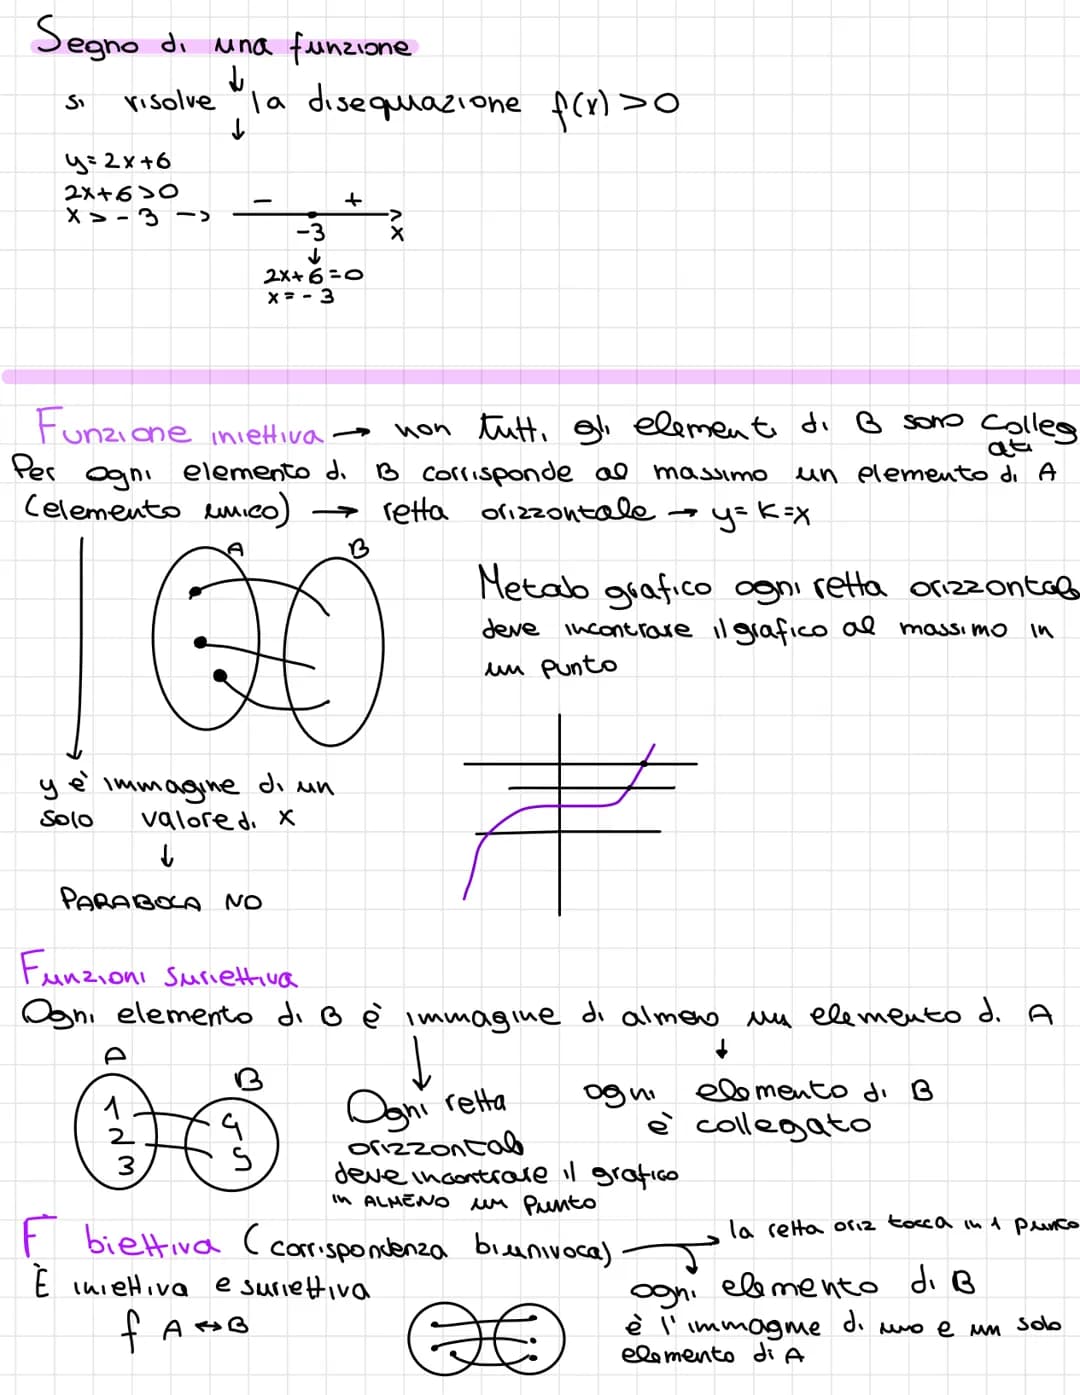 Segno di una funzione
↓
si risolve la disequazione f(x) > 0
↓
y = 2x + 6
2x + 6 > 0
x > - 3 ->
- +
-3 x
↓
2x + 6 = 0
x = - 3
Funzione iniettiva → non tutti gli elementi di B sono colleg
ati
Per ogni elemento di B corrisponde al massimo un elemento di A
(elemento unico) → retta orizzontale → y = K = x
A B
Metodo grafico ogni retta orizzontale
deve incontrare il grafico al massimo in
un punto
y è immagine di un
solo valore di x
↓
PARABOLA NO
Funzioni suriettiva
Ogni elemento di B è immagine di almeno un elemento di A
A B
1
2
3
4
5
Ogni retta
orizzontale
deve incontrare il grafico
in ALMENO un punto
ogni elemento di B
è collegato
F biettiva (corrispondenza biunivoca)
la retta oriz tocca in 1 punto
È iniettiva e suriettiva
f A ↔ B
ogni elemento di B
è l'immagine di uno e un solo
elemento di A